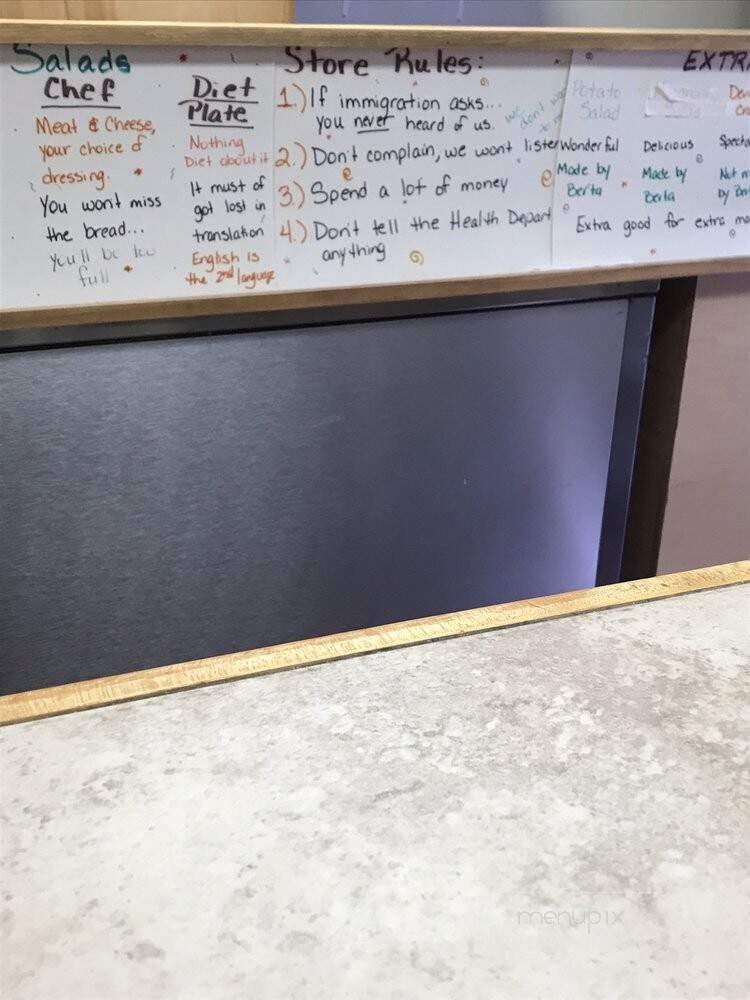 Salads
Chef
Meat & Cheese,
your choice of
dressing.
You wont miss
the bread...
You'll be too
full
Diet
Plate
Nothing
Diet about it
It must of
got lost in
translation
English is
the 2nd language
Store Rules:
1.) If immigration asks...
you never heard of us.
2.) Don't complain, we wont listen
3.) Spend a lot of money
4.) Don't tell the Health Depart
anything
EXTRA
Potato
Salad
Wonderful
Made by
Berta
Delicious
Made by
Berta
Extra good for extra
menupix